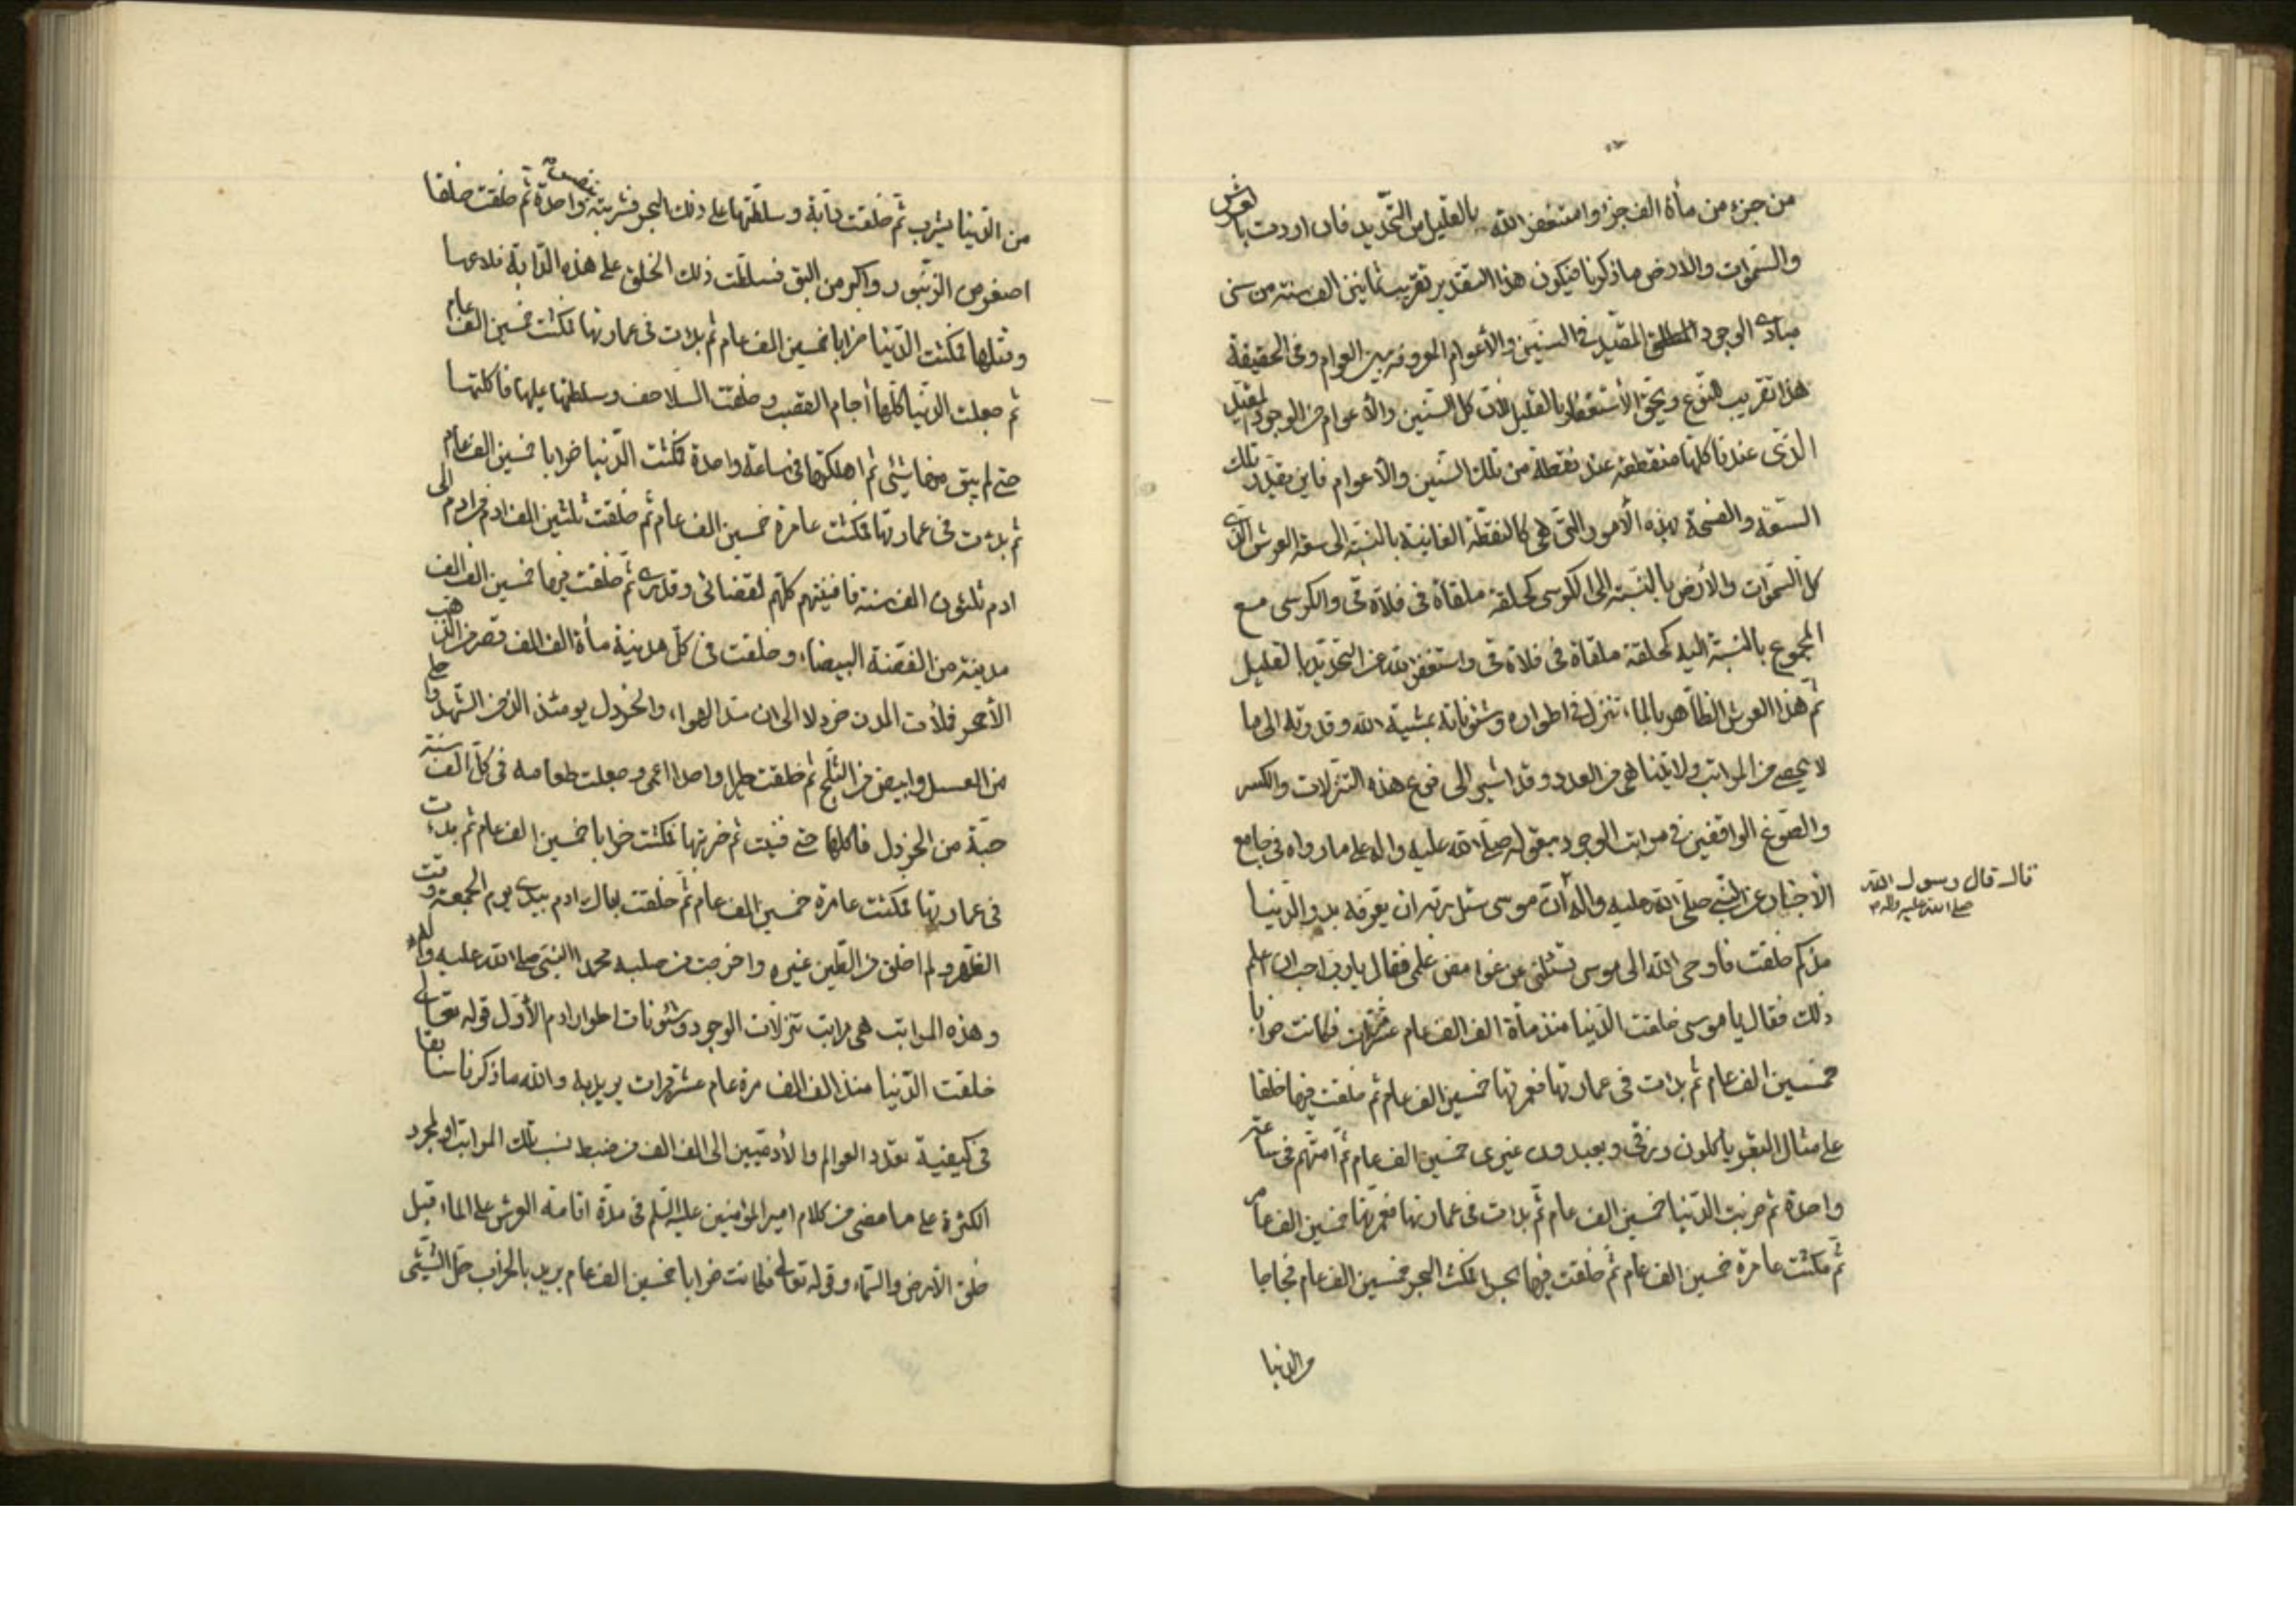 من جزء من مأة الف جزء واستغفر الله بالقليل من التحديد فان اردت بالعرش
والسموات والارض ما ذكرنا فيكون هذا التقدير تقريب ثمانين الف سنة من سني
مبادي الوجود المطلق المقيد في السنين والأعوام المعروفة بين العوام وفي الحقيقة
هذا تقريب للنوع ويحق الأستغفار بالقليل لأن كل السنين والأعوام من الوجود المقيد
الذي عندنا كلها منقطعة عند نقطة من تلك السنين والأعوام فاين يقدر تلك
السعة والفسحة بهذه الأمور التي هي كالنقطة الفانية بالنسبة الى سعة العرش الذي
كل السموات والأرض بالنسبة الى الكرسي كحلقة ملقاة في فلاة قي والكرسي مع
المجموع بالنسبة اليه كحلقة ملقاة في فلاة قي واستغفر الله عن التحديد بالقليل
ثم هذا العرش الظاهر بالماء تنزل في اطواره وشئوناته بمشية الله وقدرته الى ما
لا يحصى من المراتب ولا يتناهى من العدد وقد اشير الى نوع هذه التنزلات والكسر
والصوغ الواقعين في مراتب الوجود بقوله صلى الله عليه واله على ما رواه في جامع
الأخبار عن النبي صلى الله عليه واله أن موسى سئل ربه ان يعرفه بدو الدنيا
قال قال رسول الله
صلى الله عليه واله
منذ كم خلقت فاوحى الله الى موسى تسئلني عن غوامض علمي فقال يا رب احب ان اعلم
ذلك فقال يا موسى خلقت الدنيا منذ مأة الف الف عام عشر مرات فكانت خرابا
خمسين الف عام ثم بدات في عمارتها فعمرتها خمسين الف عام ثم خلقت فيها خلقا
على مثال البقر يأكلون رزقي ويعبدون غيري خمسين الف عام ثم امتهم في ساعة
واحدة ثم خربت الدنيا خمسين الف عام ثم بدات في عمارتها فعمرتها خمسين الف عام
ثم مكثت عامرة خمسين الف عام ثم خلقت فيها بحرا فمكث البحر خمسين الف عام فجاجا
والدنيا
من الدنيا يشرب ثم خلقت دابة وسلطتها على ذلك البحر فشربته بنفس واحدة ثم خلقت خلقا
اصغر من الزنبور واكبر من البق فسلطت ذلك الخلق على هذه الدابة فلدغها
وقتلها فمكثت الدنيا خرابا خمسين الف عام ثم بدات في عمارتها فمكثت خمسين الف عام
ثم جعلت الدنيا كلها أجام القصب وخلقت السلاحف وسلطتها عليها فاكلتها
حتى لم يبق منها شئ ثم اهلكتها في ساعة واحدة فمكثت الدنيا خرابا خمسين الف عام
ثم بدات في عمارتها فمكثت عامرة خمسين الف عام ثم خلقت ثلثين الف ادم من ادم الى
ادم ثلثون الف سنة فافنيتهم كلهم لقضائي وقدري ثم خلقت فيها خمسين الف الف
مدينة من الفضة البيضاء وخلقت في كل مدينة مأة الف الف قصر من الذهب
الأحمر فملأت المدن خردلا الى ان سد الهواء والخردل يومئذ الذ من الشهد واحلى
من العسل وابيض من الثلج ثم خلقت طيرا واحدا اعمى وجعلت طعامه في كل الف سنة
حبة من الخردل فاكلها حتى فنيت ثم خربتها فمكثت خرابا خمسين الف عام ثم بدءت
في عمارتها فمكثت عامرة خمسين الف عام ثم خلقت اباك ادم بيدي يوم الجمعة وقت
الظهر ولم اخلق من الطين غيره واخرجت من صلبه محمدا النبي صلى الله عليه واله
وهذه المراتب هي مراتب تنزلات الوجود وشئونات اطوار ادم الأول قوله تعالى
خلقت الدنيا منذ الف الف مرة عام عشر مرات يريد به والله ما ذكرنا سابقا
في كيفية تعدد العوالم والأدميين الى الف الف من ضبط نسب تلك المراتب او لمجرد
الكثرة على ما مضى من كلام امير المؤمنين عليه السلم في مدة اقامة العرش على الماء قبل
خلق الأرض والسماء وقوله تعالى فكانت خرابا خمسين الف عام يريد بالخراب حل الشئ